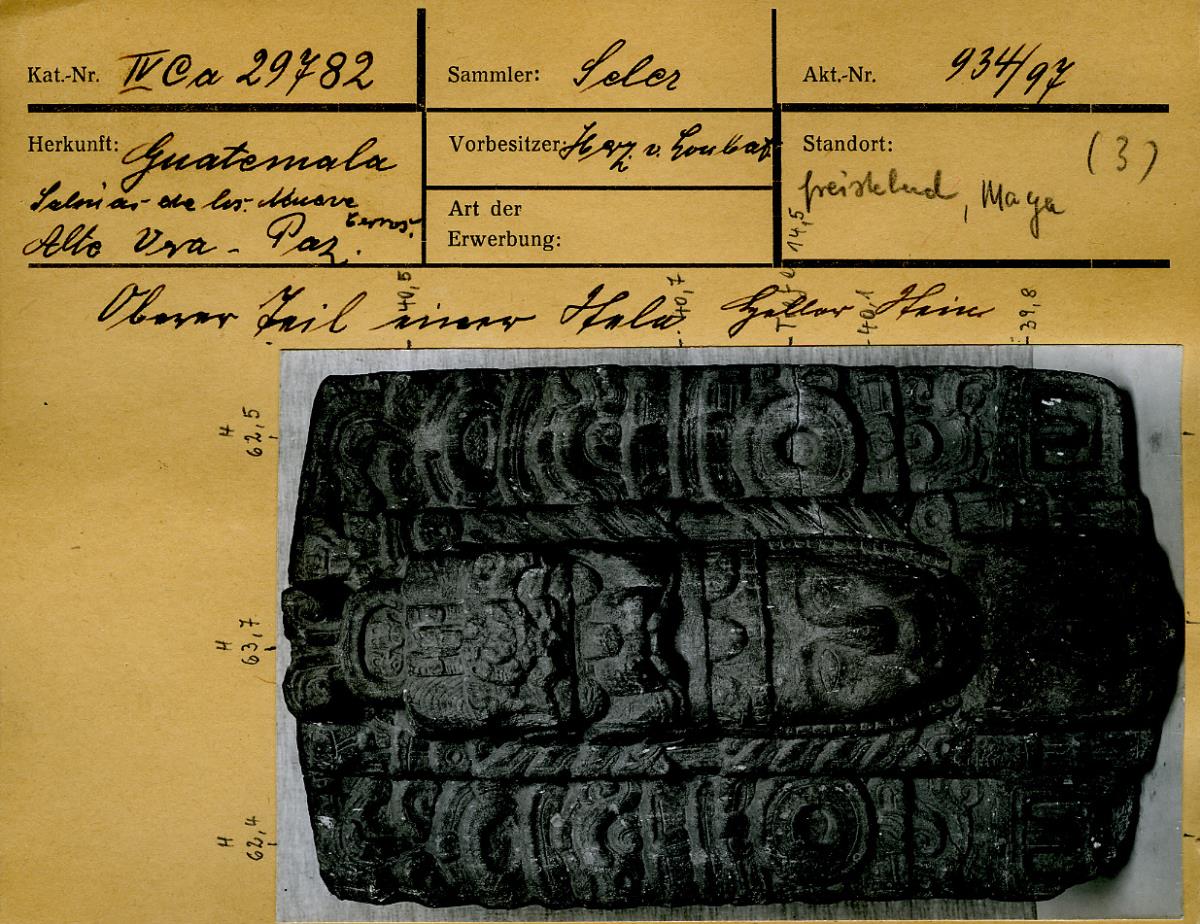 Kat.-Nr. IV Ca 29782
Sammler: Seler
Akt.-Nr. 934/97
Herkunft: Guatemala
Salinas de los Nueve
Cerros.
Alta Vera - Paz.
Vorbesitzer: Herz. v. Loubat
Art der
Erwerbung:
Standort: (3)
freistehend, Maya
Oberer Teil einer Stela Heller Stein
40,5
40,7
Tiefe 14,5
40,1
39,8
H
62,5
H
63,7
H
62,4